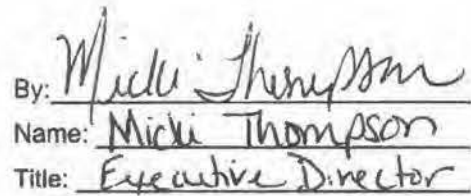 By: Micki Thompson
Name: Micki Thompson
Title: Executive Director